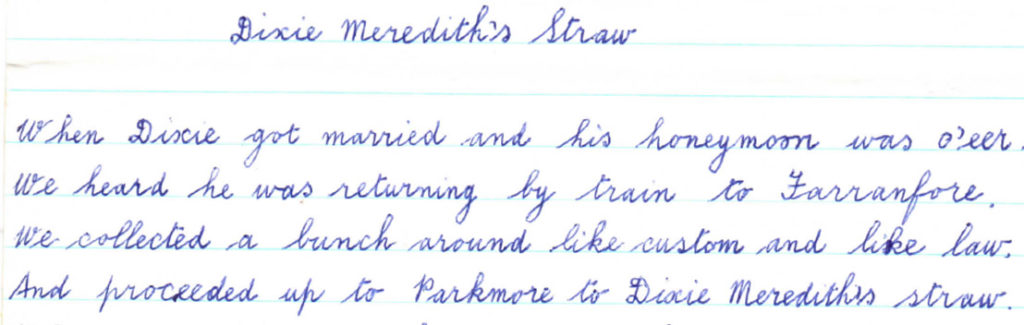 Dixie Meredith's Straw
When Dixie got married and his honeymoon was o'eer.
We heard he was returning by train to Farranfore.
We collected a bunch around like custom and like law.
And proceeded up to Parkmore to Dixie Meredith's straw.